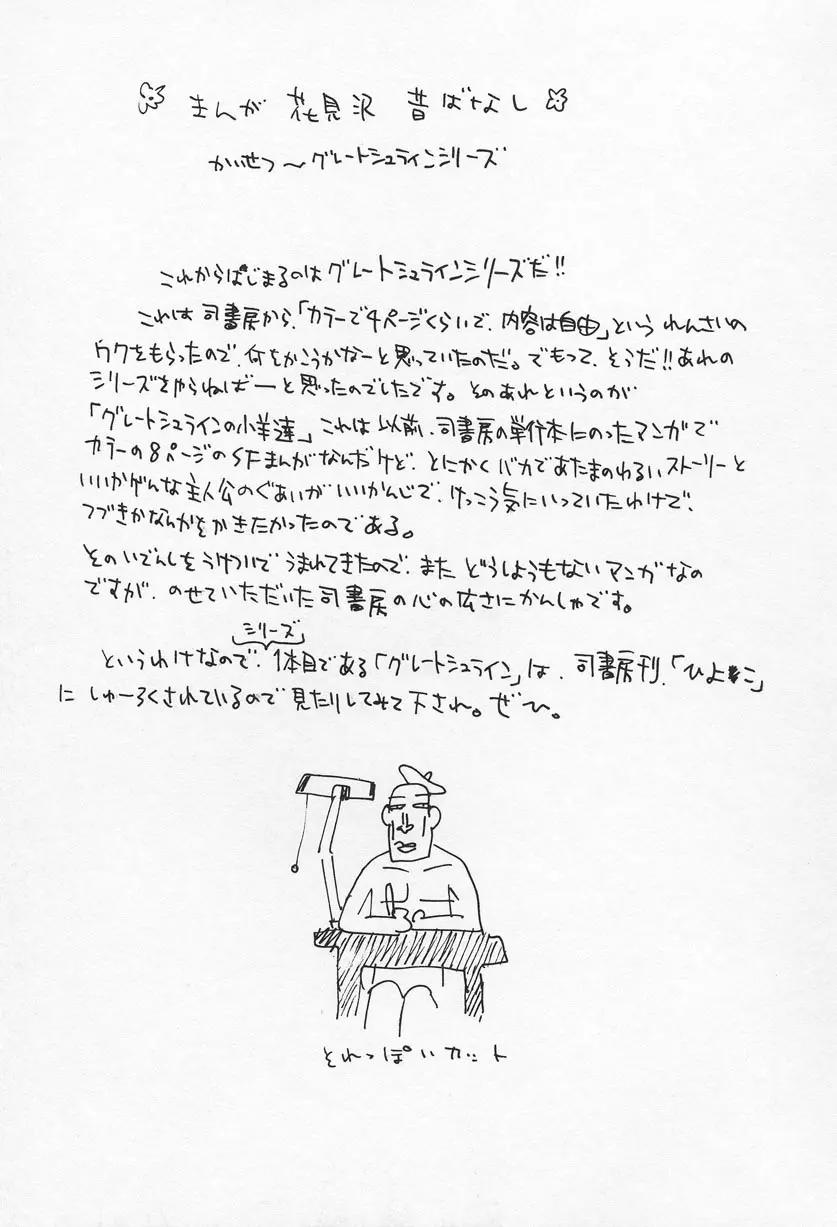 まんが 花見沢 昔ばなし
かいせつ〜グレートシュラインシリーズ
これからはじまるのはグレートシュラインシリーズだ!!
これは司書房から、「カラーで4ページくらいで、内容は自由」というれんさいの
ワクをもらったので、何をかこうかなーと思っていたのだ。でもって、そうだ!!あれの
シリーズをやらねばーと思ったのでしたです。そのあれというのが
「グレートシュラインの小羊達」これは以前、司書房の単行本にのったマンガで
カラーの8ページのSFまんがなんだけど、とにかくバカであたまのわるいストーリーと
いいかげんな主人公のぐあいがいいかんじで、けっこう気にいっていたわけで、
つづきかなんかをかきたかったのである。
そのいでんしをうけついでうまれてきたので、またどうしようもないマンガなの
ですが、のせていただいた司書房の心の広さにかんしゃです。
シリーズ
というわけなので、1本目である「グレートシュライン」は、司書房刊、「ひよこ」
にしゅーろくされているので見たりしてみて下され。ぜひ。
それっぽいカット